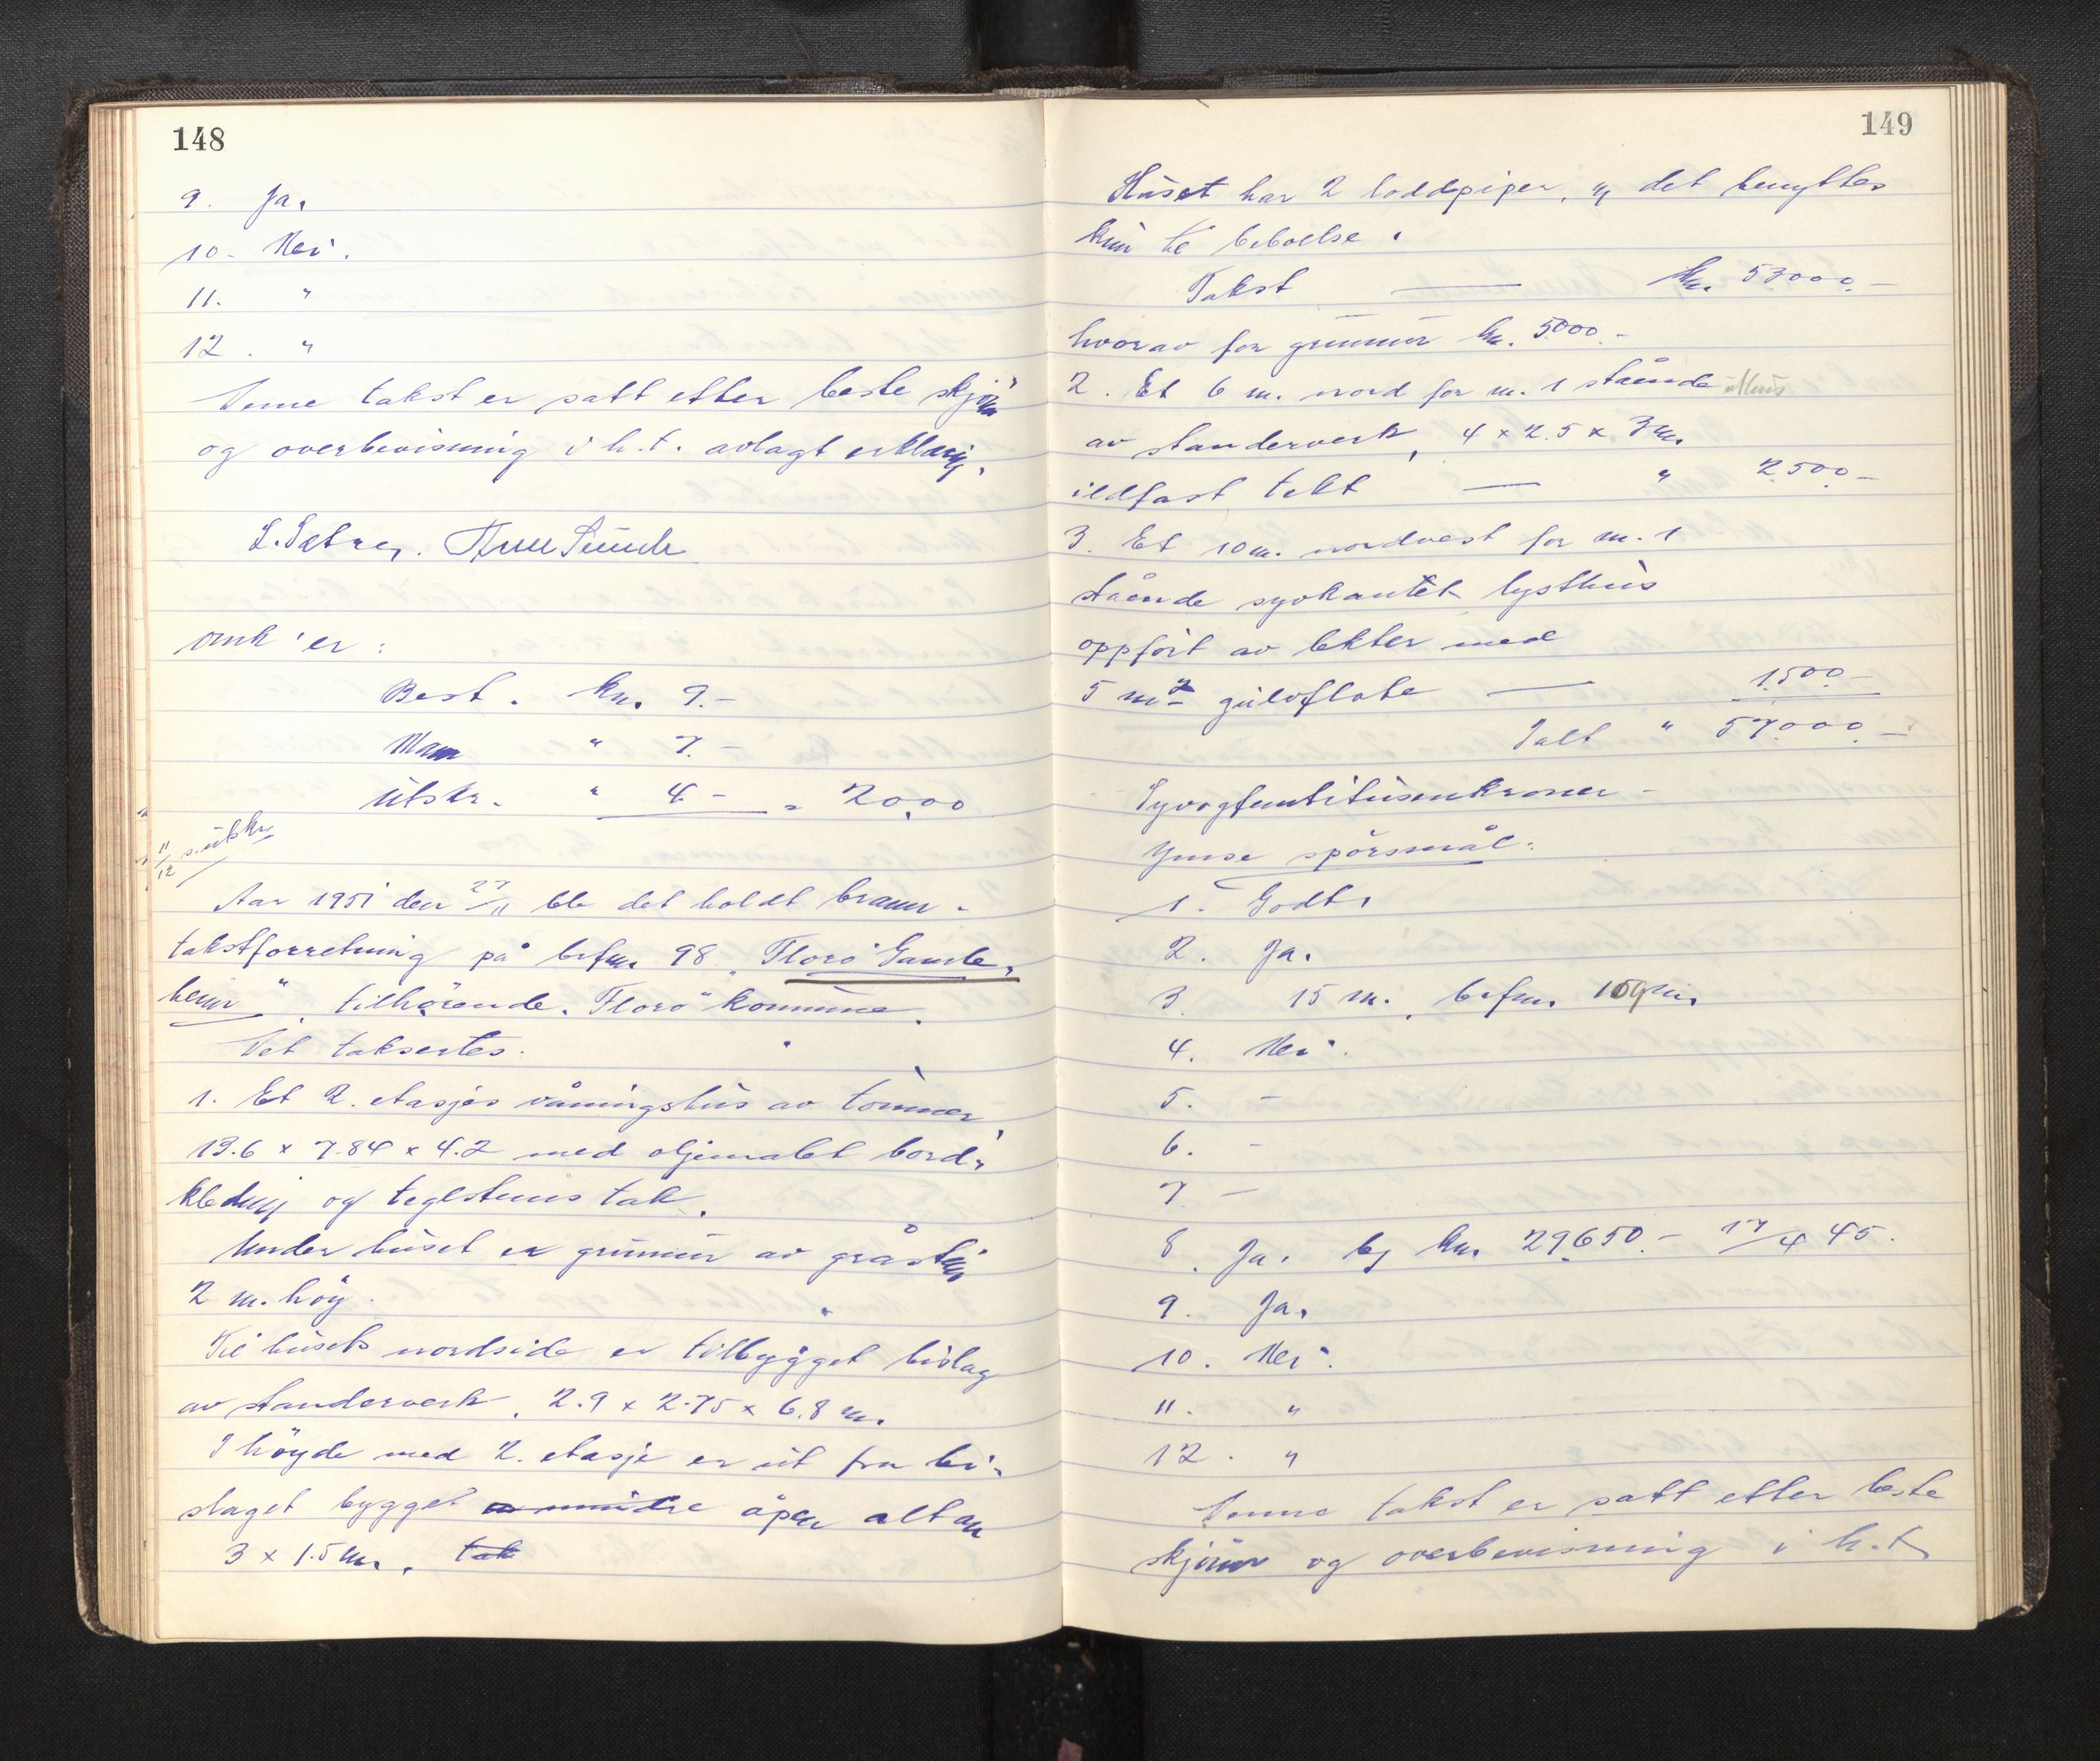 148
9. Ja.
10. Nei.
11. "
12. "
Denne takst er satt etter beste skjönn
og overbevisning i h.t. avlagt erklæring.
L. Sætren. Arne Sunde
Omk'er:
Best. kr. 9.-
Mann " 7.-
Utskr. " 4 - = 20,00
11/12 s. utskr.
Aar 1951 den 27/11 ble det holdt brann-
takstforretning på brfnr 98 "Florö Gamle-
heim", tilhörende Florö kommune.
Det taksertes.
1. Et 2. etasjes våningshus av tömmer,
13.6 x 7.84 x 4.2 med oljemalet bord-
kledning og teglstens tak.
Under huset er grunnmur av gråsten
2 m. höy.
Til husets nordside er tilbygget bislag
av standerverk, 2.9 x 2.75 x 6.8 m.
I höyde med 2. etasje er ut fra bi-
slaget bygget en mindre åpen altan
3 x 1.5 m. tak
149
Huset har 2 loddpiper, og det benyttes
kun til beboelse.
Takst — kr. 53000.-
hvorav for grunnmur kr. 5000.-
2. Et 6 m. nord for m. 1 stående uthus
av standerverk, 4 x 2.5 x 3 m.
ildfast tekt — " 2500.-
3. Et 10 m. nordvest for m. 1
stående syvkantet lysthus
oppfört av lekter med
5 m2 gulvflate — 1500.-
Ialt " 57000.-
Syvogfemtitusenkroner -
Ymse spörsmål:
1. Godt.
2. Ja.
3. 15 m. brfnr. 109 m.
4. Nei.
5. -
6. -
7. -
8. Ja. kr. 29650.- 17/4 45.
9. Ja.
10. Nei.
11. "
12. "
Denne takst er satt etter beste
skjönn og overbevisning i h.t.